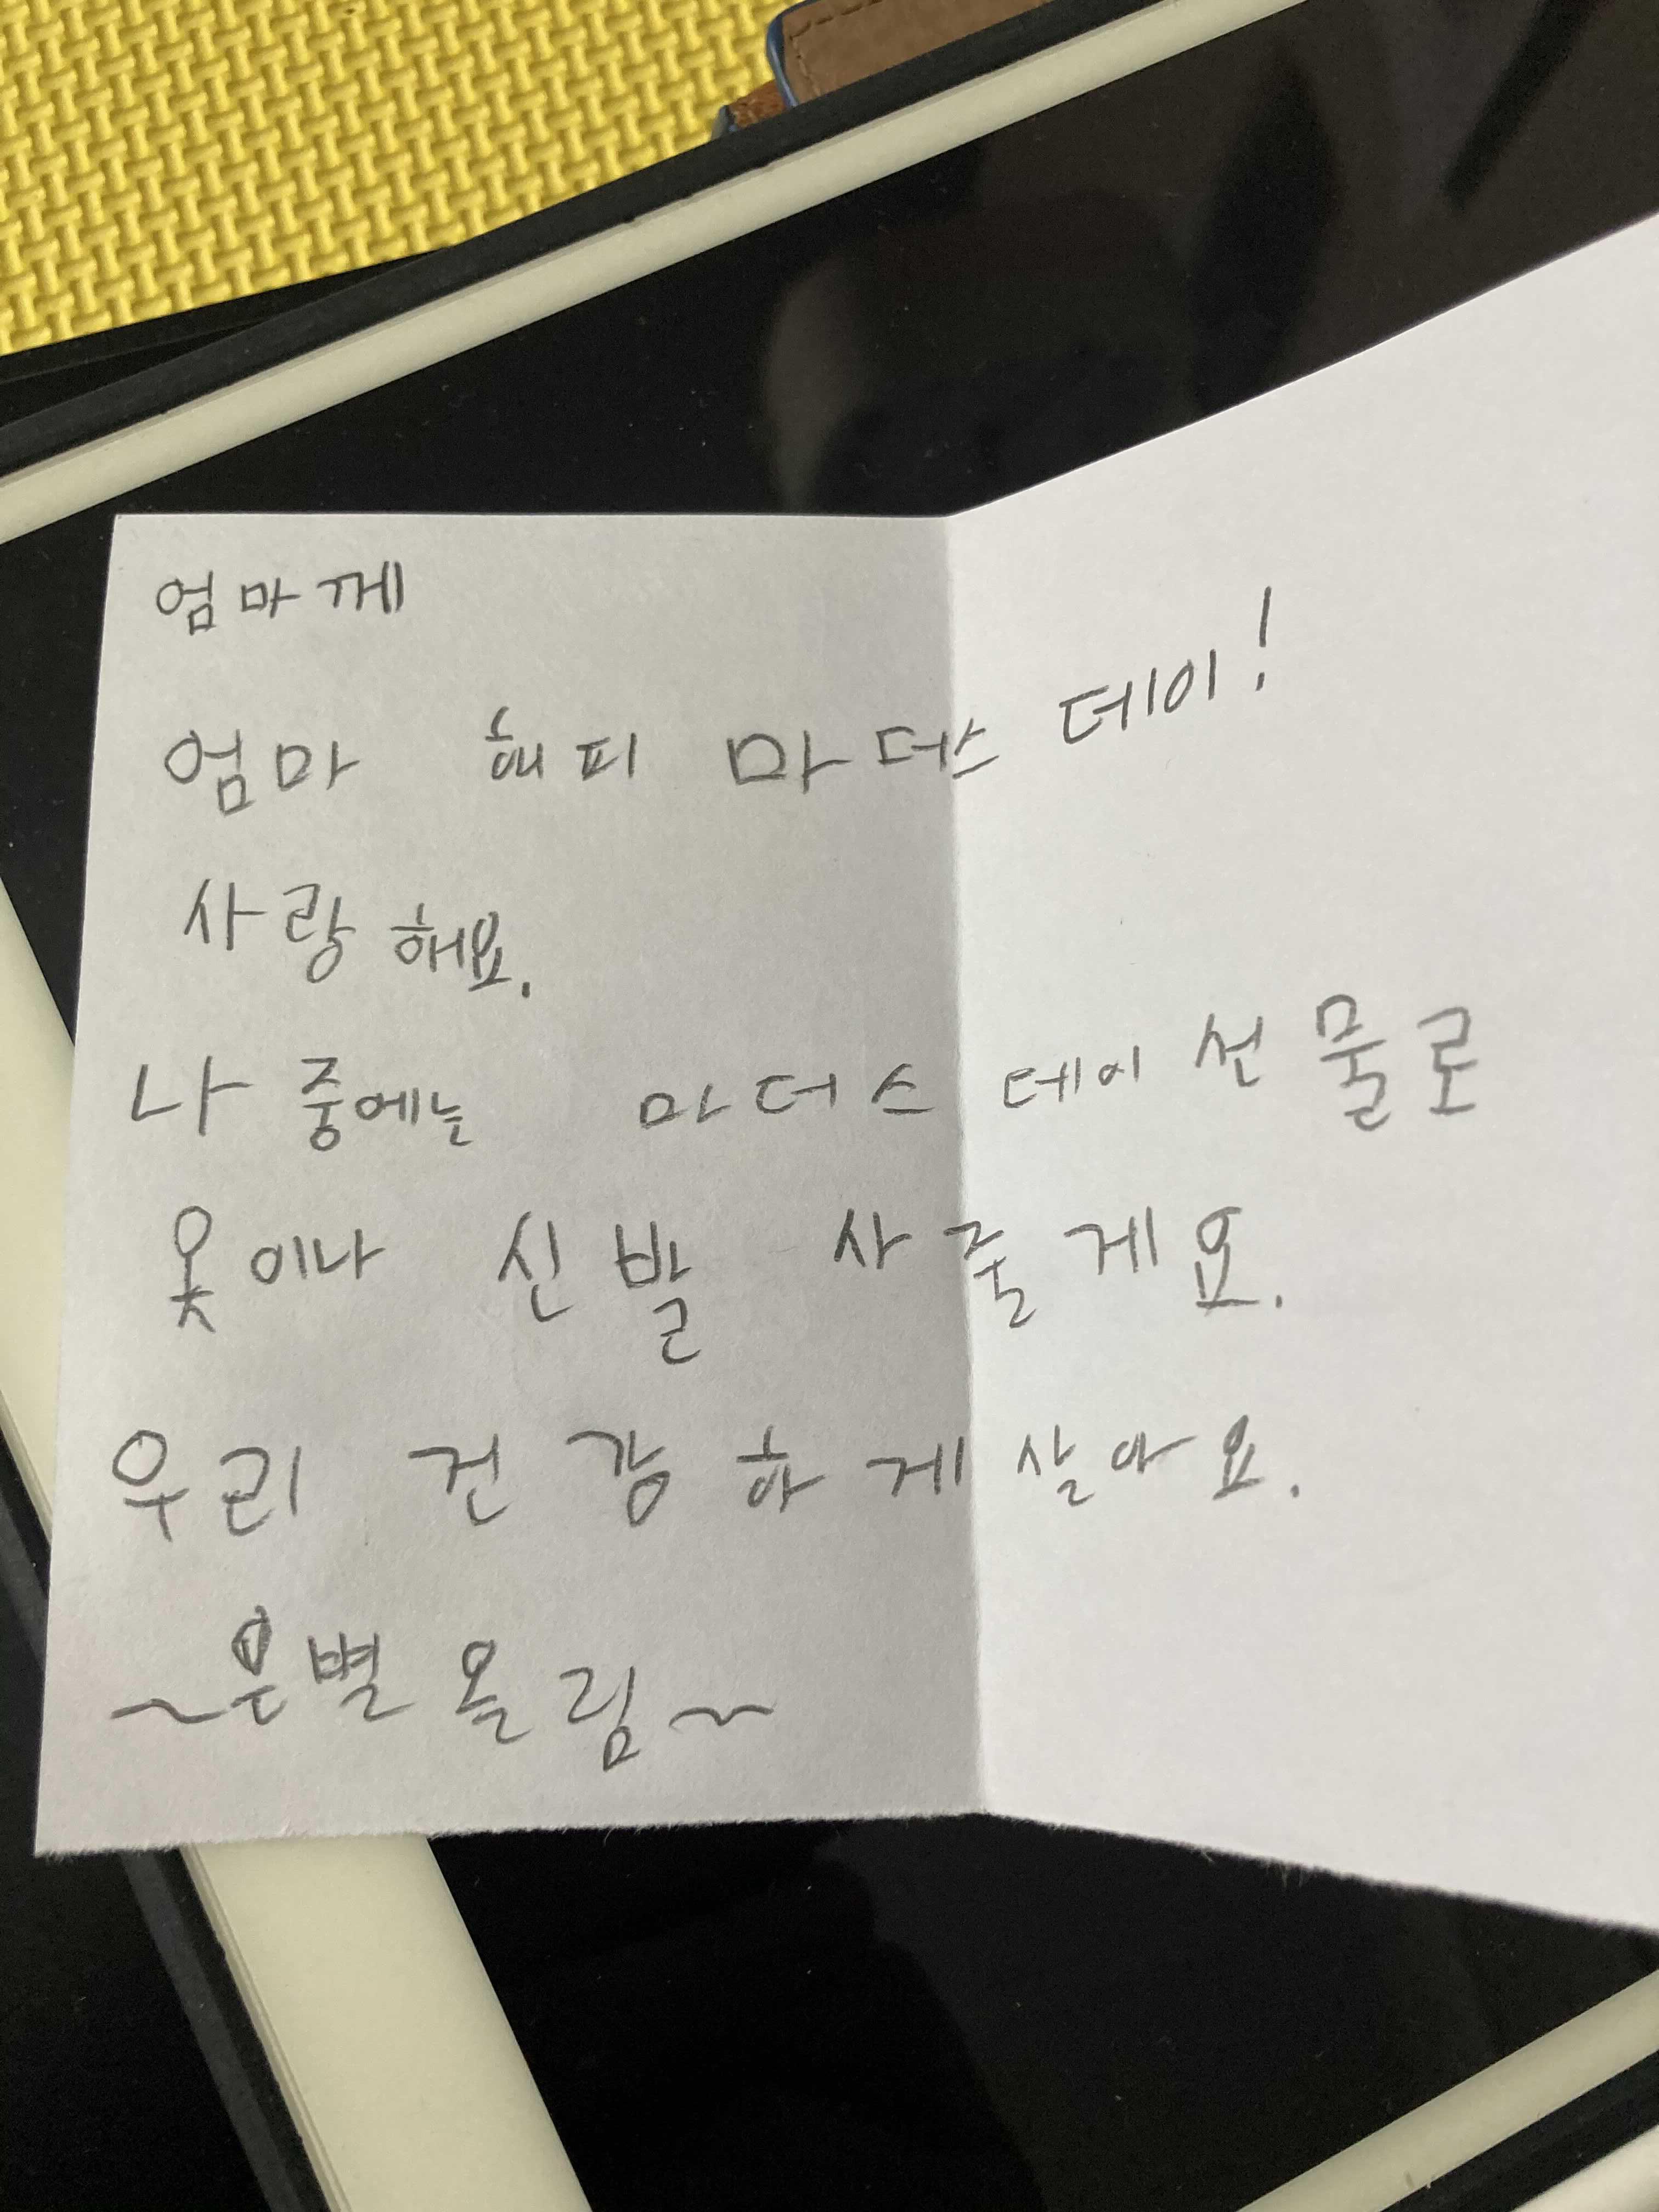 엄마께
엄마 해피 마더스 데이!
사랑해요.
나중에는 마더스 데이 선물로
옷이나 신발 사줄게요.
우리 건강하게 살아요.
~은별 올림~